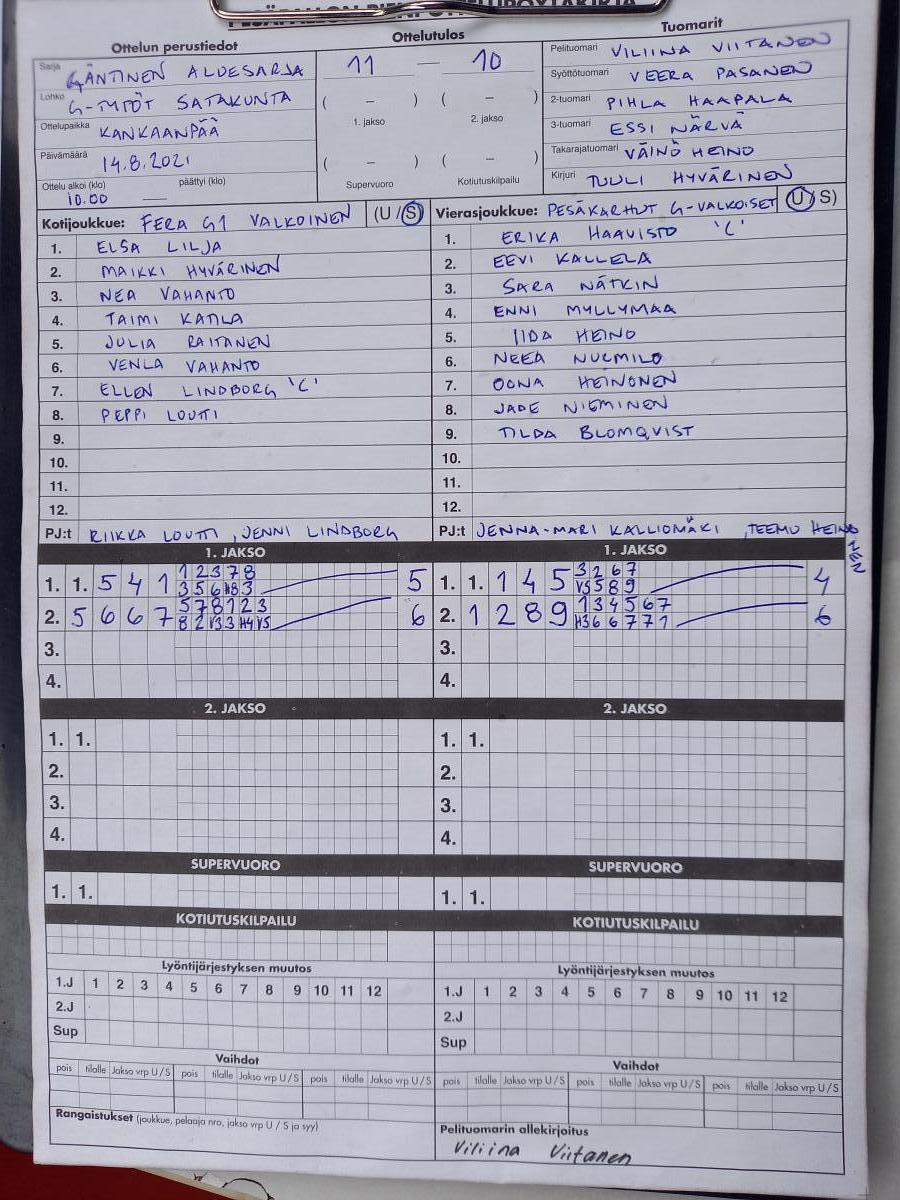 Ottelun perustiedot
Ottelutulos
Tuomarit
Sarja GÄNTINEN ALUESARJA
Lohko G-TYTÖT SATAKUNTA
Ottelupaikka KANKAANPÄÄ
Päivämäärä 14.8.2021
Ottelu alkoi (klo) päättyi (klo)
10.00 —
11 — 10
( – ) ( – )
1. jakso 2. jakso
( – ) ( – )
Supervuoro Kotiutuskilpailu
Pelituomari VILIINA VIITANEN
Syöttötuomari VEERA PASANEN
2-tuomari PIHLA HAAPALA
3-tuomari ESSI NÄRVÄ
Takarajatuomari VÄINÖ HEINO
Kirjuri TUULI HYVÄRINEN
Kotijoukkue: FERA G1 VALKOINEN (U / S)
1. ELSA LILJA
2. MAIKKI HYVÄRINEN
3. NEA VAHANTO
4. TAIMI KATILA
5. JULIA RAITANEN
6. VENLA VAHANTO
7. ELLEN LINDBORG 'C'
8. PEPPI LOUTI
9.
10.
11.
12.
PJ:t RIIKKA LOUTI, JENNI LINDBORG
Vierasjoukkue: PESÄKARHUT G-VALKOISET (U / S)
1. ERIKA HAAVISTO 'C'
2. EEVI KALLELA
3. SARA NÄTKIN
4. ENNI MYLLYMAA
5. IIDA HEINO
6. NEEA NURMILO
7. OONA HEINONEN
8. JADE NIEMINEN
9. TILDA BLOMQVIST
10.
11.
12.
PJ:t JENNA-MARI KALLIOMÄKI, TEEMU HEINONEN
1. JAKSO
1. 1. 5 4 1 1 2 3 7 8 5
3 5 6 H8 3
2. 5 6 6 7 5 7 8 1 2 3 6
8 2 V3 3 H4 V5
3.
4.
1. JAKSO
1. 1. 1 4 5 3 2 6 7 4
V5 5 8 9
2. 1 2 8 9 1 3 4 5 6 7 6
H3 6 6 7 7 1
3.
4.
2. JAKSO
1. 1.
2.
3.
4.
2. JAKSO
1. 1.
2.
3.
4.
SUPERVUORO
1. 1.
SUPERVUORO
1. 1.
KOTIUTUSKILPAILU
KOTIUTUSKILPAILU
Lyöntijärjestyksen muutos
1.J 1 2 3 4 5 6 7 8 9 10 11 12
2.J
Sup
Lyöntijärjestyksen muutos
1.J 1 2 3 4 5 6 7 8 9 10 11 12
2.J
Sup
Vaihdot
pois tilalle Jakso vrp U / S pois tilalle Jakso vrp U / S pois tilalle Jakso vrp U / S
Vaihdot
pois tilalle Jakso vrp U / S pois tilalle Jakso vrp U / S pois tilalle Jakso vrp U / S
Rangaistukset (joukkue, pelaaja nro, jakso vrp U / S ja syy)
Pelituomarin allekirjoitus
Viliina Viitanen